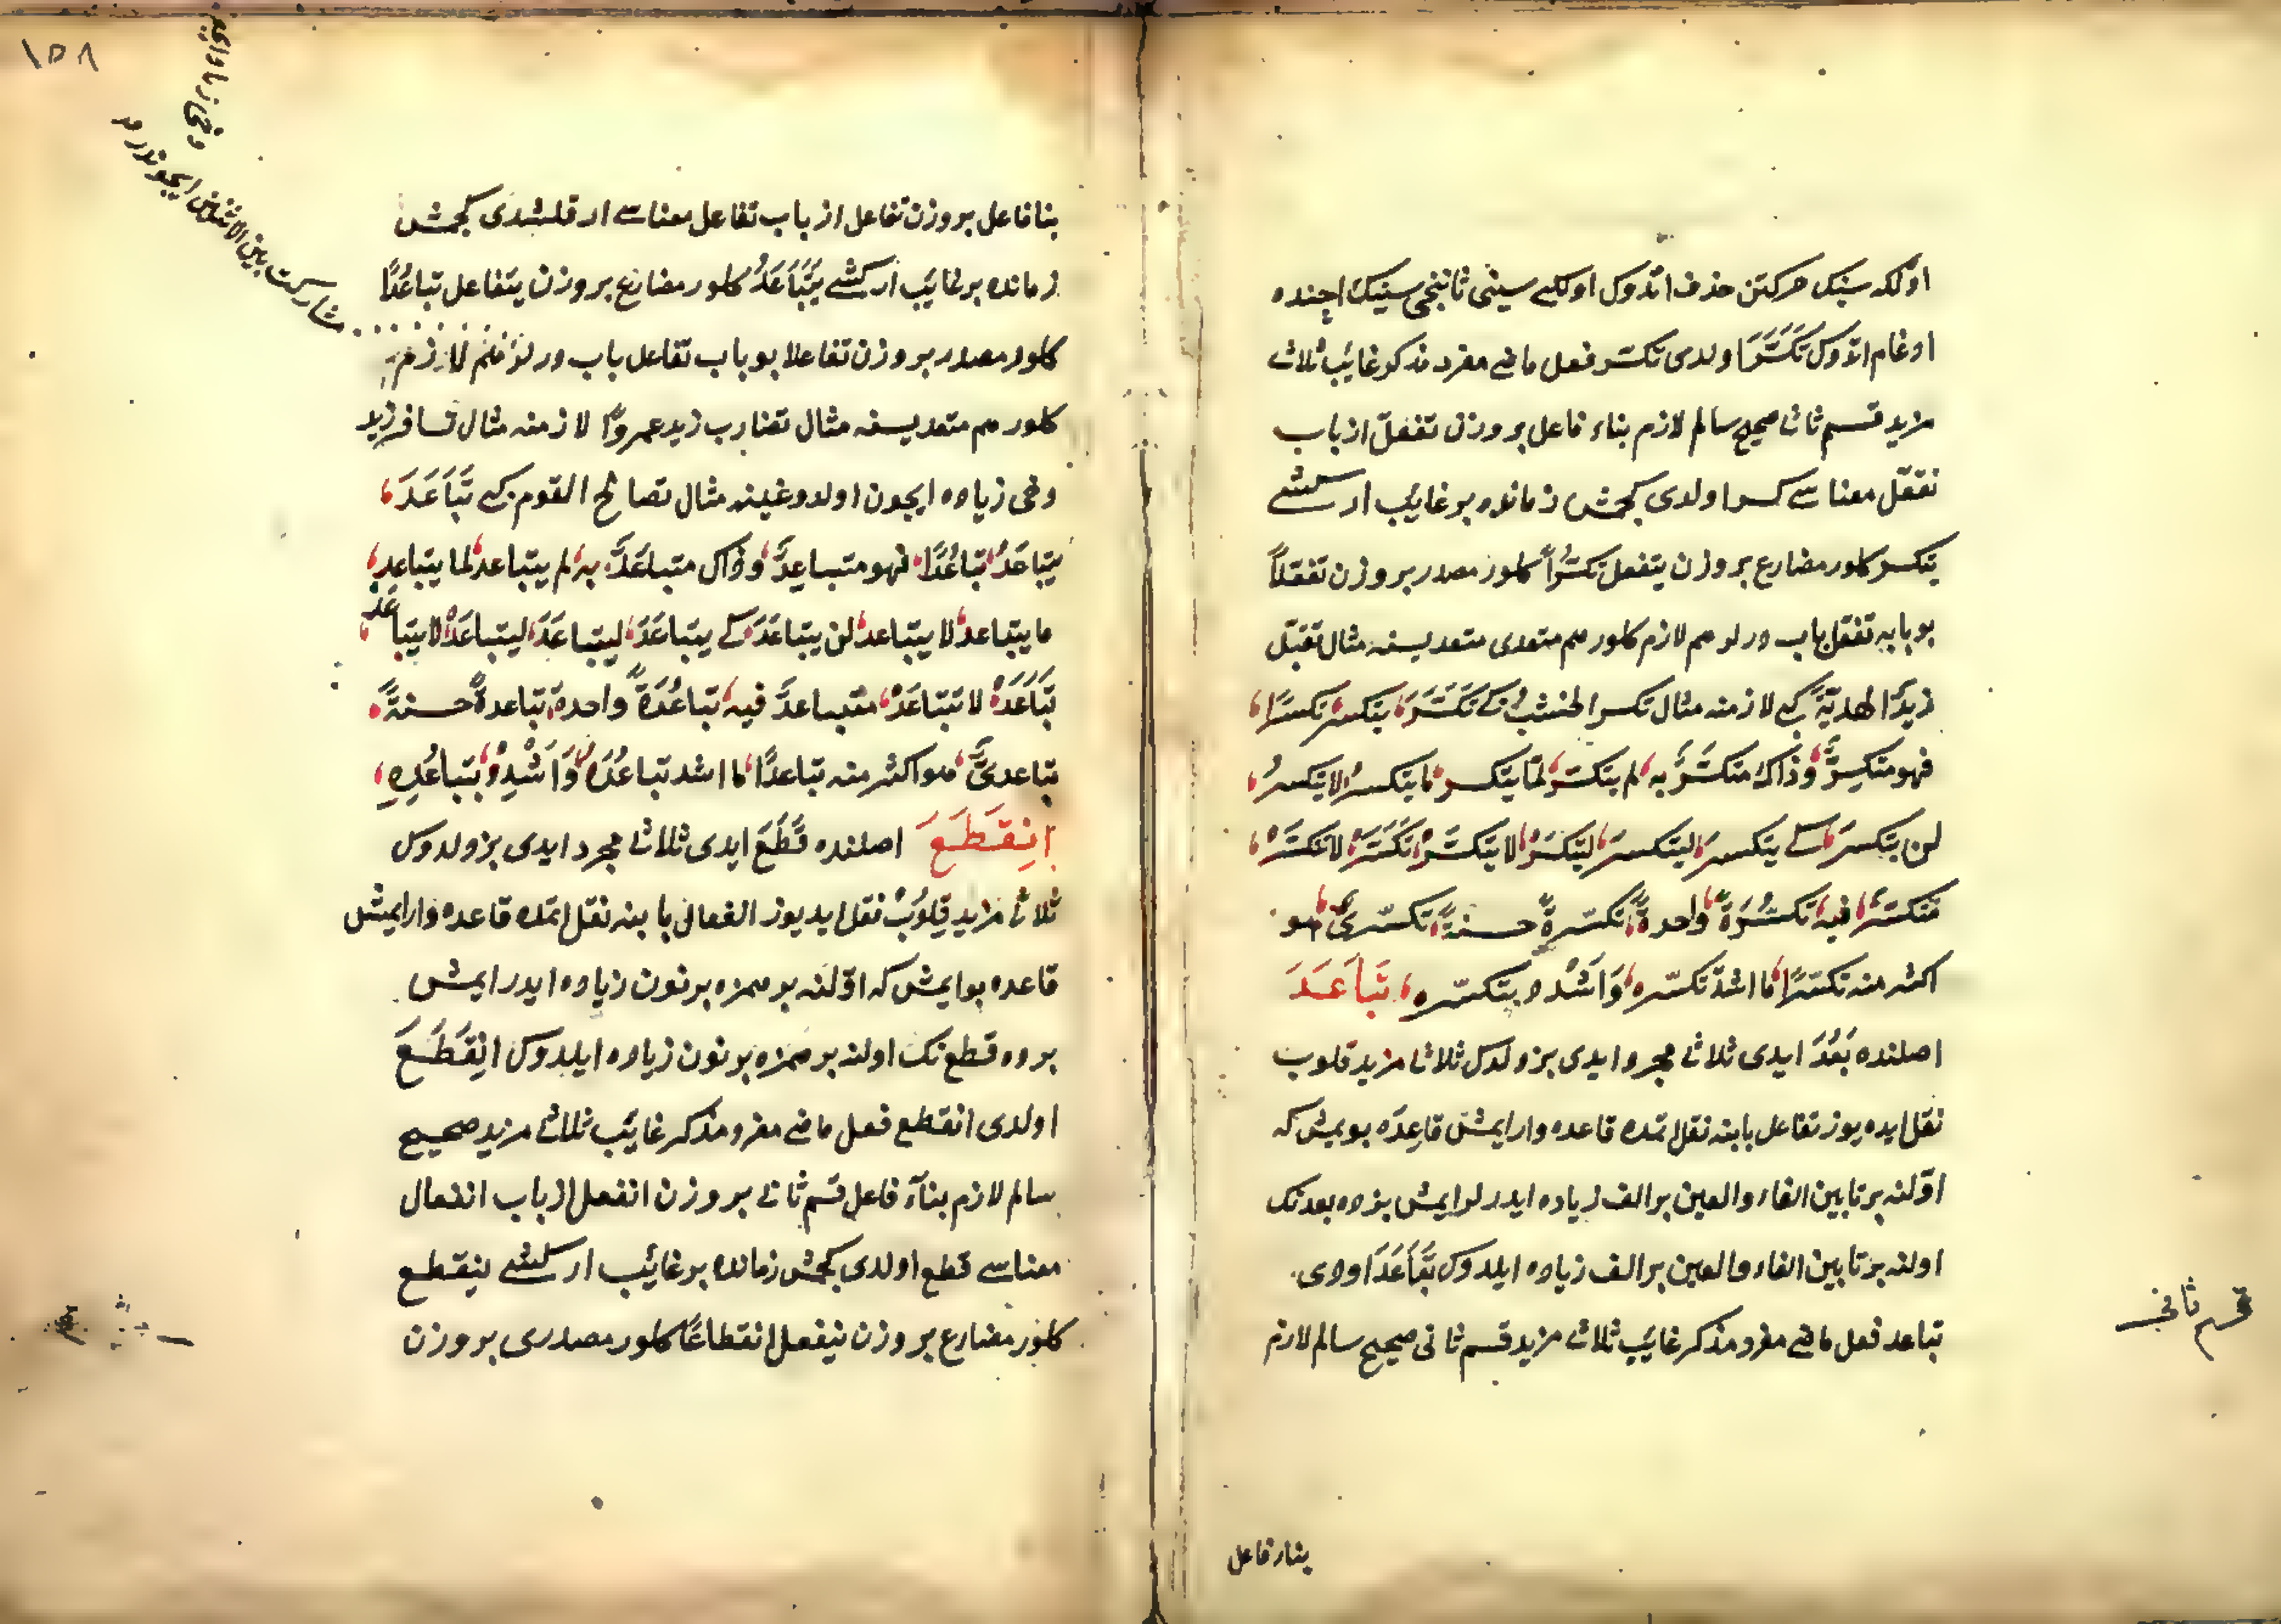 اولكه سينك حركتن حذف اتدوك اولكى سينى ثاننجى سينك اچنده
ادغام اتدوك تَكَسَّرَ اولدى تكسر فعل ماضى مفرد مذكر غائب ثلاثى
مزيد قسم ثانى صحيح سالم لازم بناء فاعل بر وزن تفعّل از باب
تفعّل معناسى كسر اولدى كچمش زمانده بر غائب ار كشى
يتكسر كلور مضارع بر وزن يتفعل تكسُّراً كلور مصدر بر وزن تفعّلاً
بو بابه تفعّل باب درلر هم لازم كلور هم متعدى متعديسنه مثال تقبّل
زيدٌ الهديّةَ كبى لازمنه مثال تكسر الخشبُ كبى تَكَسَّرَ يتكسر تكسرًا
فهو متكسِرٌ وذاك متكسَّرٌ به لم يتكسر لمّا يتكسر ما يتكسرُ لا يتكسرُ
لن يتكسرَ كى يتكسرَ ليتكسرَ ليتكسَّرْ لا يتكسَّرْ تَكَسَّرْ لا تتكسَّرْ
متكسَّرٌ فيه تكسُّرَةً واحدةً تكسّرةً حسنةً تكسّرىٌّ هو
اكثر منه تكسّرًا ما اشدّ تكسّره وَاَشْدِدْ بتكسّره تَبَاعَدَ
اصلنده بَعُدَ ايدى ثلاثى مجرد ايدى بز ولدوك ثلاثى مزيد قلوب
نقل ايده يوز تفاعل بابنه نقل اتمده قاعده وار ايمش قاعده بويمش كه
اوّلنه بر تا بين الفاء والعين بر الف زياده ايدرلر ايمش بزده بعدنك
اولنه بر تا بين الفاء والعين بر الف زياده ايلدوك تَبَاعَدَ اولدى
تباعد فعل ماضى مفرد مذكر غائب ثلاثى مزيد قسم ثانى صحيح سالم لازم
قسم ثانى
بناء فاعل
١٥٨
مشاركت بين الاثنين ايچوندر
بنا فاعل بر وزن تفاعل از باب تفاعل معناسى ار قلشدى كچمش
زمانده بر غائب ار كشى يَتَبَاعَدُ كلور مضارع بر وزن يتفاعل تباعُدًا
كلور مصدر بر وزن تفاعلا بو بابه تفاعل باب درلر هم لازم
كلور هم متعديسنه مثال تضارب زيد عمروًا لازمنه مثال تسافر زيد
دخى زياده ايچون اولدوغينه مثال تصالح القوم كبى تَبَاعَدَ
يتباعَدُ تباعُدًا فهو متباعِدٌ وذاك متباعَدٌ به لم يتباعد لما يتباعد
ما يتباعد لا يتباعد لن يتباعَدَ كى يتباعَدَ ليتباعَدَ ليتباعَدْ لا يتباعد
تَبَاعَدْ لا تتباعَدْ متباعدٌ فيه تباعُدَةً واحدةً تباعدةً حسنةً
تباعدىٌّ هو اكثر منه تباعدًا ما اشد تباعُدَه وَاَشْدِدْ بتباعُدِهِ
اِنْقَطَعَ اصلنده قَطَعَ ايدى ثلاثى مجرد ايدى بز ولدوك
ثلاثى مزيد قِلوب نقل ايديوز انفعال بابنه نقل اتمده قاعده وار ايمش
قاعده بوايمش كه اوّلنه بر همزه بر نون زياده ايدر ايمش
بزده قطع نك اولنه بر همزه بر نون زياده ايلدوك اِنْقَطَعَ
اولدى انقطع فعل ماضى مفرد مذكر غائب ثلاثى مزيد صحيح
سالم لازم بناء فاعل قسم ثانى بر وزن انفعل از باب انفعال
معناسى قطع اولدى كچمش زمانده بر غائب ار كشى ينقطع
كلور مضارع بر وزن ينفعل انقطاعًا كلور مصدرى بر وزن